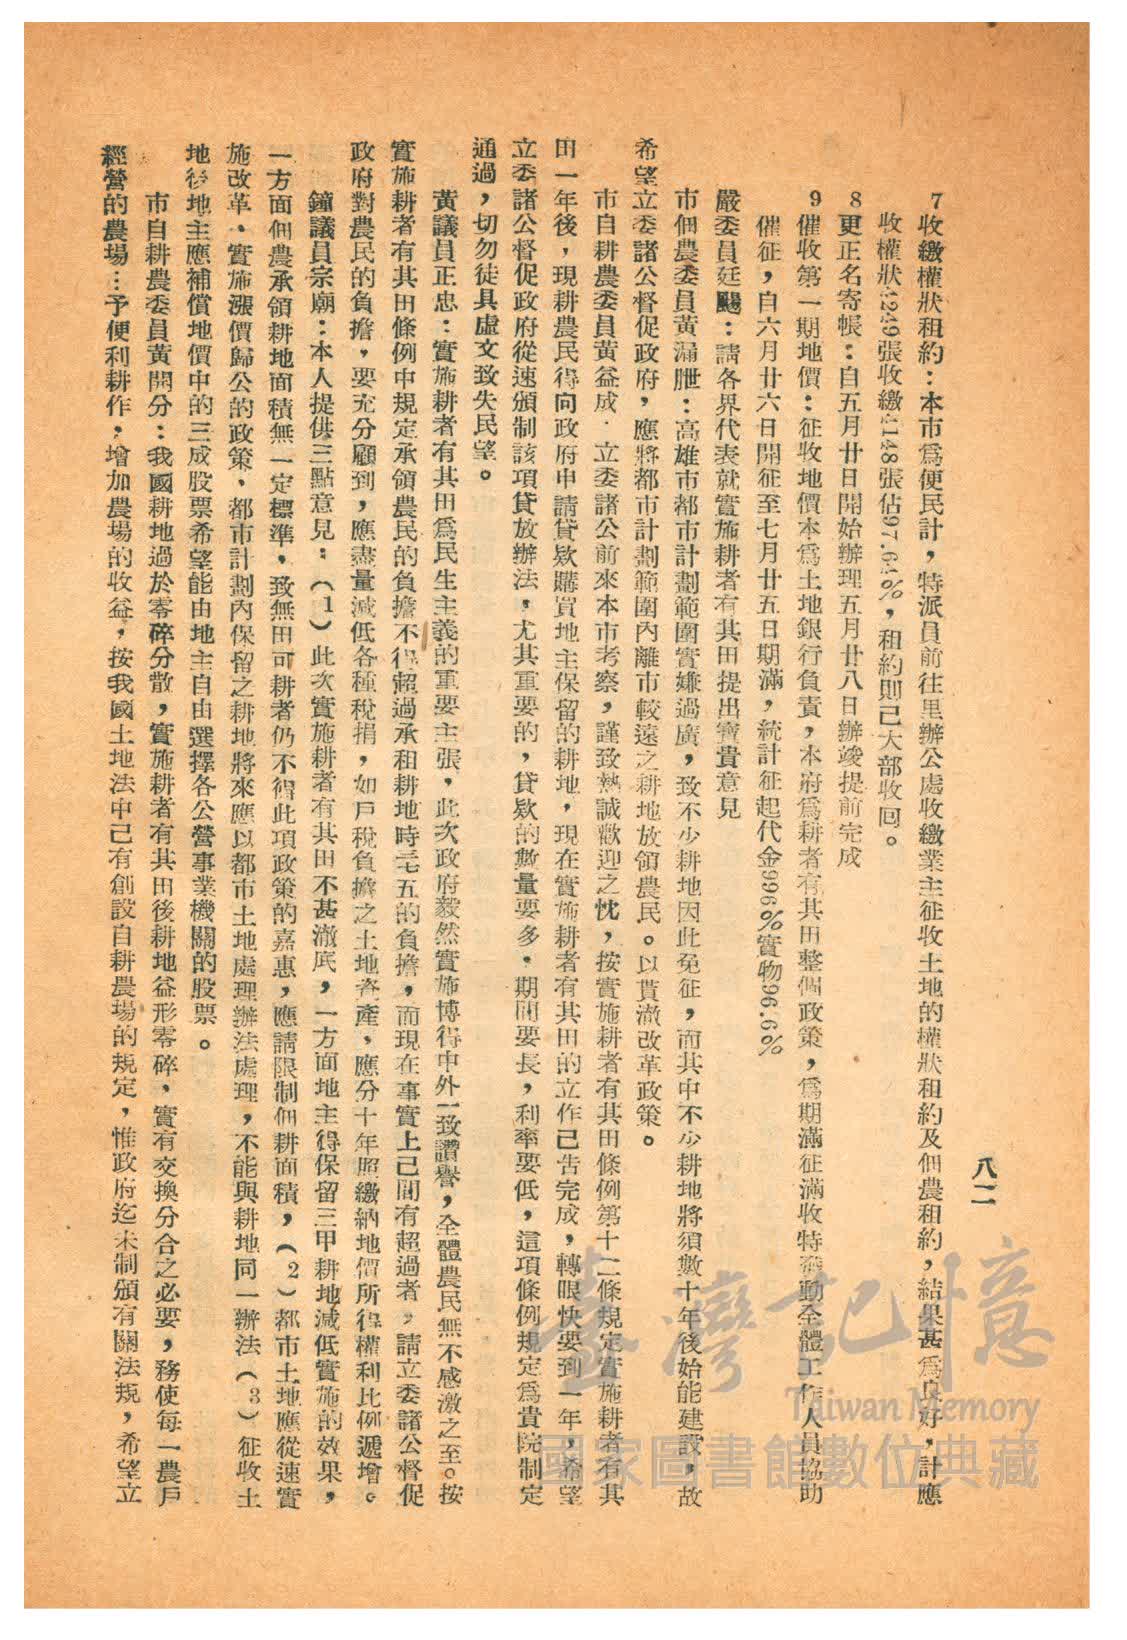 八二
7 收繳權狀租約：本市爲便民計，特派員前往里辦公處收繳業主征收土地的權狀租約及佃農租約，結果甚爲良好，計應
收權狀4249張收繳4148張佔97.64%，租約則已大部收回。
8 更正名寄帳：自五月廿日開始辦理五月廿八日辦竣提前完成
9 催收第一期地價：征收地價本爲土地銀行負責，本府爲耕者有其田整個政策，爲期滿征滿收特發動全體工作人員協助
催征，自六月廿六日開征至七月廿五日期滿，統計征起代金996%實物96.6%
嚴委員廷颺：請各界代表就實施耕者有其田提出寶貴意見
市佃農委員黃漏胜：高雄市都市計劃範圍實嫌過廣，致不少耕地因此免征，而其中不少耕地將須數十年後始能建設，故
希望立委諸公督促政府，應將都市計劃範圍內離市較遠之耕地放領農民。以貫澈改革政策。
市自耕農委員黃益成．立委諸公前來本市考察，謹致熱誠歡迎之忱，按實施耕者有其田條例第十二條規定實施耕者有其
田一年後，現耕農民得向政府申請貸欵購買地主保留的耕地，現在實施耕者有其田的立作已告完成，轉眼快要到一年，希望
立委諸公督促政府從速頒制該項貸放辦法，尤其重要的，貸欵的數量要多．期間要長，利率要低，這項條例規定爲貴院制定
通過，切勿徒具虛文致失民望。
黃議員正忠：實施耕者有其田爲民生主義的重要主張，此次政府毅然實施博得中外一致讚譽，全體農民無不感激之至。按
實施耕者有其田條例中規定承領農民的負擔不得超過承租耕地時三七五的負擔，而現在事實上已間有超過者，請立委諸公督促
政府對農民的負擔，要充分顧到，應盡量減低各種稅捐，如戶稅負擔之土地資產，應分十年照繳納地價所得權利比例遞增。
鐘議員宗廟：本人提供三點意見：（1）此次實施耕者有其田不甚澈底，一方面地主得保留三甲耕地減低實施的效果，
一方面佃農承領耕地面積無一定標準，致無田可耕者仍不得此項政策的嘉惠，應請限制佃耕面積，（2）都市土地應從速實
施改革、實施漲價歸公的政策、都市計劃內保留之耕地將來應以都市土地處理辦法處理，不能與耕地同一辦法（3）征收土
地後地主應補償地價中的三成股票希望能由地主自由選擇各公營事業機關的股票。
市自耕農委員黃開分：我國耕地過於零碎分散，實施耕者有其田後耕地益形零碎．實有交換分合之必要，務使每一農戶
經營的農場…予便利耕作，增加農場的收益，按我國土地法中已有創設自耕農場的規定，惟政府迄未制頒有關法規，希望立
臺灣記憶
Taiwan Memory
國家圖書館數位典藏